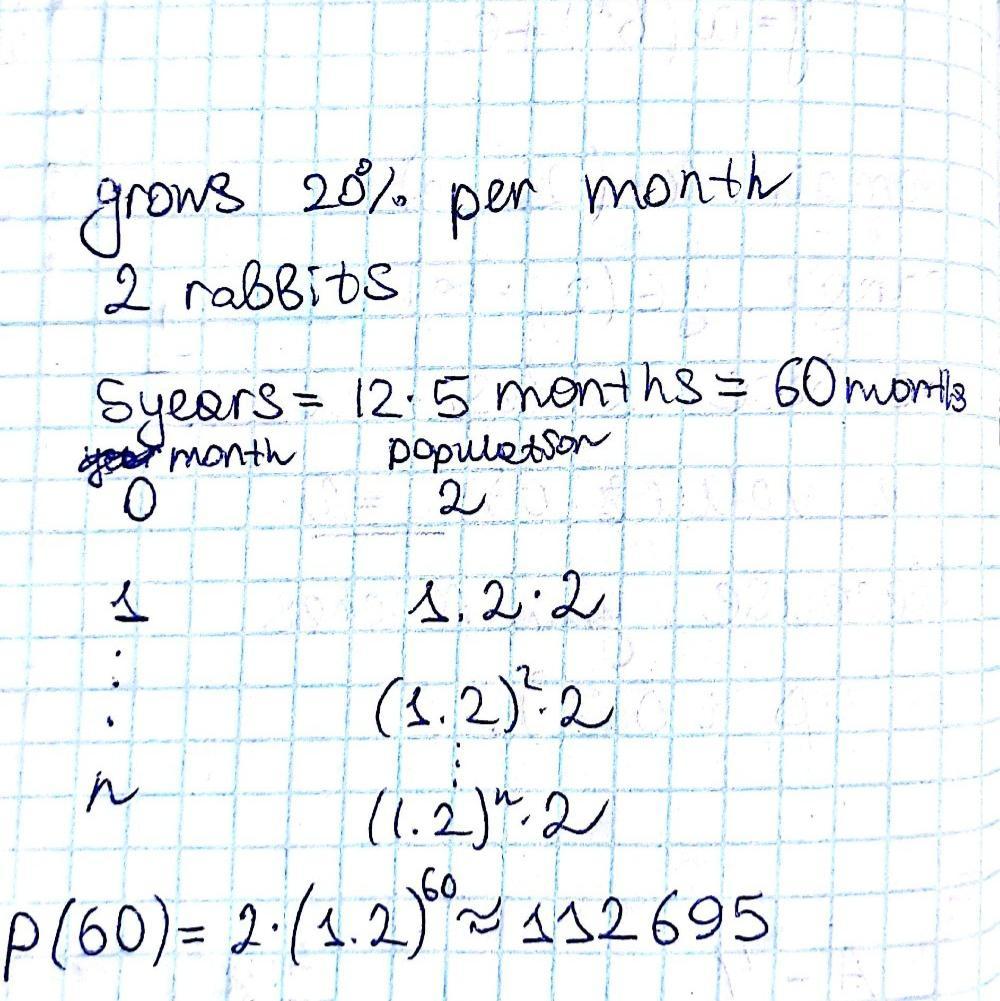 grows 20% per month
2 rabbits
5years = 12·5 months = 60 months
month population
0 2
1 1.2·2
(1.2)²·2
n (1.2)ⁿ·2
P(60) = 2·(1.2)⁶⁰ ≈ 112695